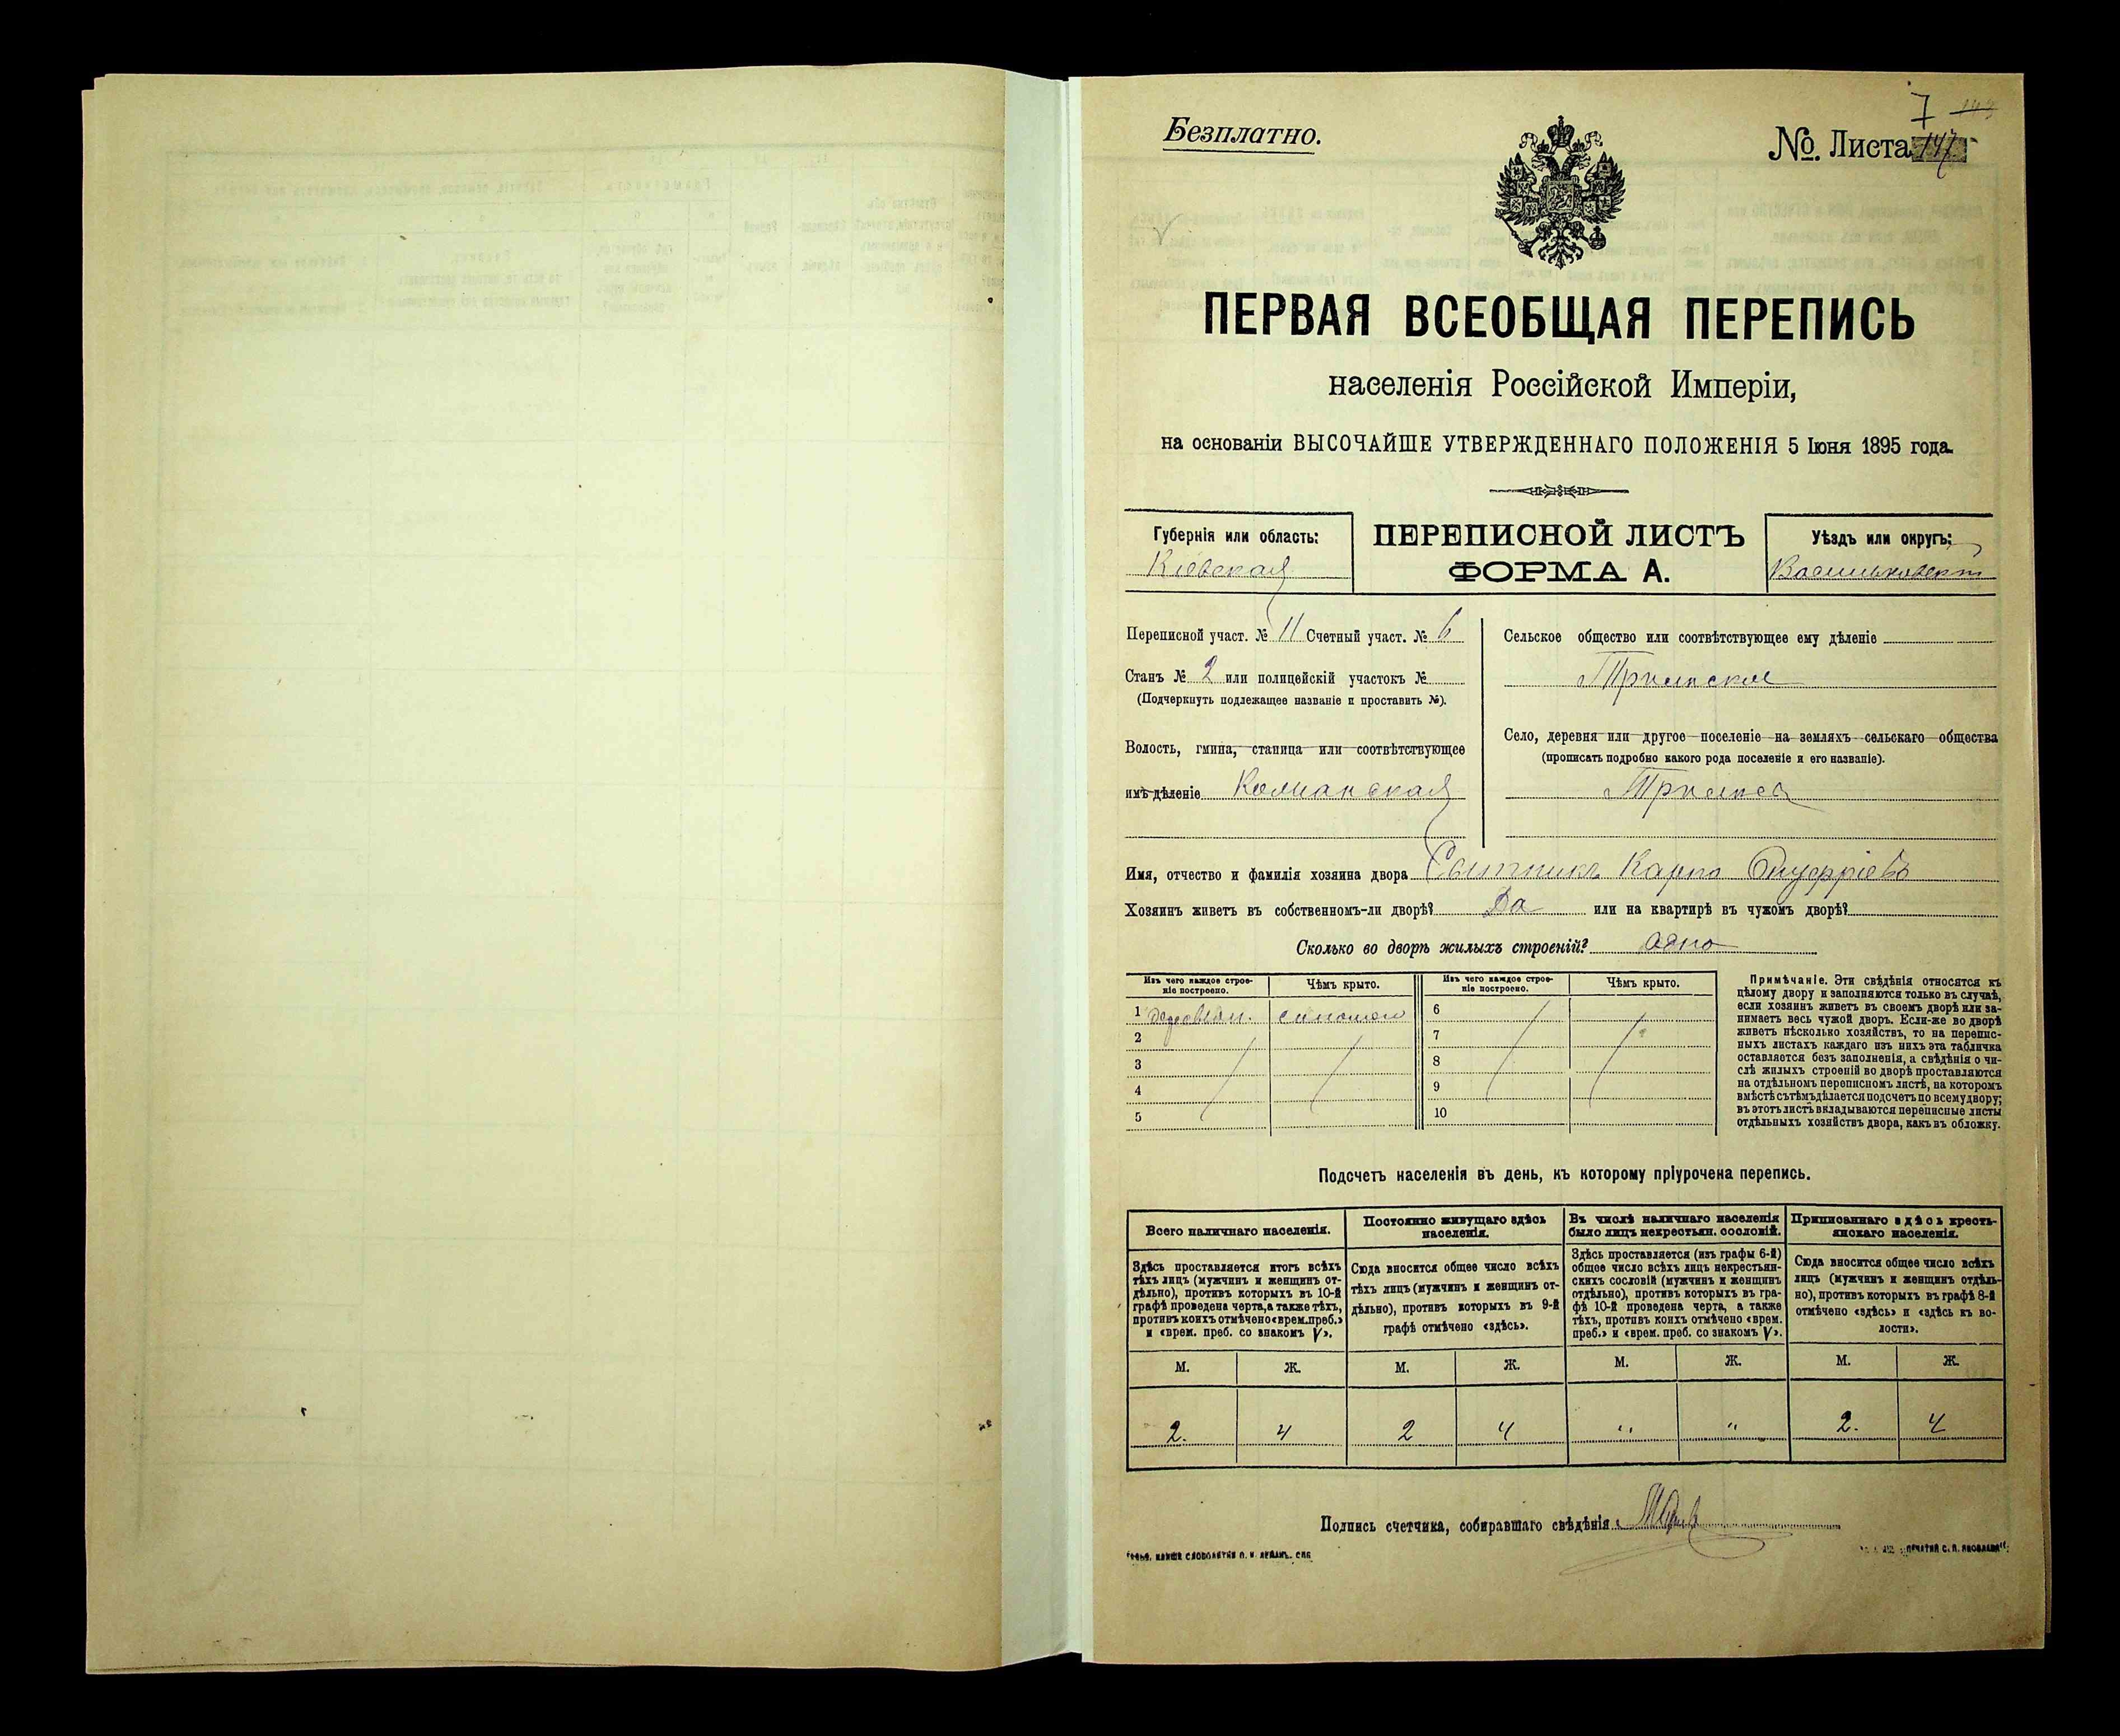 Безплатно.
7
№. Листа 147
ПЕРВАЯ ВСЕОБЩАЯ ПЕРЕПИСЬ
населенія Россійской Имперіи,
на основаніи ВЫСОЧАЙШЕ УТВЕРЖДЕННАГО ПОЛОЖЕНІЯ 5 Іюня 1895 года.
Губернія или область:
Кіевская
ПЕРЕПИСНОЙ ЛИСТЪ
ФОРМА А.
Уѣздъ или округъ:
Васильковскій
Переписной участ. № 11 Счетный участ. № 6
Станъ № 2 или полицейскій участокъ №
(Подчеркнуть подлежащее названіе и проставить №).
Волость, гмина, станица или соотвѣтствующее
имъ дѣленіе
Сельское общество или соотвѣтствующее ему дѣленіе
Трилѣское
Село, деревня или другое поселеніе на земляхъ сельскаго общества
(прописать подробно какого рода поселеніе и его названіе).
Имя, отчество и фамилія хозяина двора Сытникъ Карпо Онуфріевъ
Хозяинъ живетъ въ собственномъ-ли дворѣ? Да или на квартирѣ въ чужомъ дворѣ?
Сколько во дворѣ жилыхъ строеній? одно
Изъ чего каждое строе-
ніе построено.
Чѣмъ крыто.
Изъ чего каждое строе-
ніе построено.
Чѣмъ крыто.
1 деревян. соломою
2
3
4
5
6
7
8
9
10
Примѣчаніе. Эти свѣдѣнія относятся къ
цѣлому двору и заполняются только въ случаѣ,
если хозяинъ живетъ въ своемъ дворѣ или за-
нимаетъ весь чужой дворъ. Если-же во дворѣ
живетъ нѣсколько хозяйствъ, то на перепис-
ныхъ листахъ каждаго изъ нихъ эта табличка
оставляется безъ заполненія, а свѣдѣнія о чи-
слѣ жилыхъ строеній во дворѣ проставляются
на отдѣльномъ переписномъ листѣ, на которомъ
вмѣстѣ съ тѣмъ дѣлается подсчетъ по всему двору;
въ этотъ листъ вкладываются переписные листы
отдѣльныхъ хозяйствъ двора, какъ въ обложку.
Подсчетъ населенія въ день, къ которому пріурочена перепись.
Всего наличнаго населенія.
Здѣсь проставляется итогъ всѣхъ
тѣхъ лицъ (мужчинъ и женщинъ от-
дѣльно), противъ которыхъ въ 10-й
графѣ проведена черта, а также тѣхъ,
противъ коихъ отмѣчено «врем. преб.»
и «врем. преб. со знакомъ V».
Постоянно живущаго здѣсь
населенія.
Сюда вносится общее число всѣхъ
тѣхъ лицъ (мужчинъ и женщинъ от-
дѣльно), противъ которыхъ въ 9-й
графѣ отмѣчено «здѣсь».
Въ числѣ наличнаго населенія
было лицъ некрестьян. сословій.
Здѣсь проставляется (изъ графы 6-й)
общее число всѣхъ лицъ некрестьян-
скихъ сословій (мужчинъ и женщинъ
отдѣльно), противъ которыхъ въ гра-
фѣ 10-й проведена черта, а также
тѣхъ, противъ коихъ отмѣчено «врем.
преб.» и «врем. преб. со знакомъ V».
Приписаннаго здѣсь кресть-
янскаго населенія.
Сюда вносится общее число всѣхъ
лицъ (мужчинъ и женщинъ отдѣль-
но), противъ которыхъ въ графѣ 8-й
отмѣчено «здѣсь» и «здѣсь къ во-
лости».
М. Ж. М. Ж. М. Ж. М. Ж.
2. 4 2 4 " " 2. 4
Подпись счетчика, собиравшаго свѣдѣнія